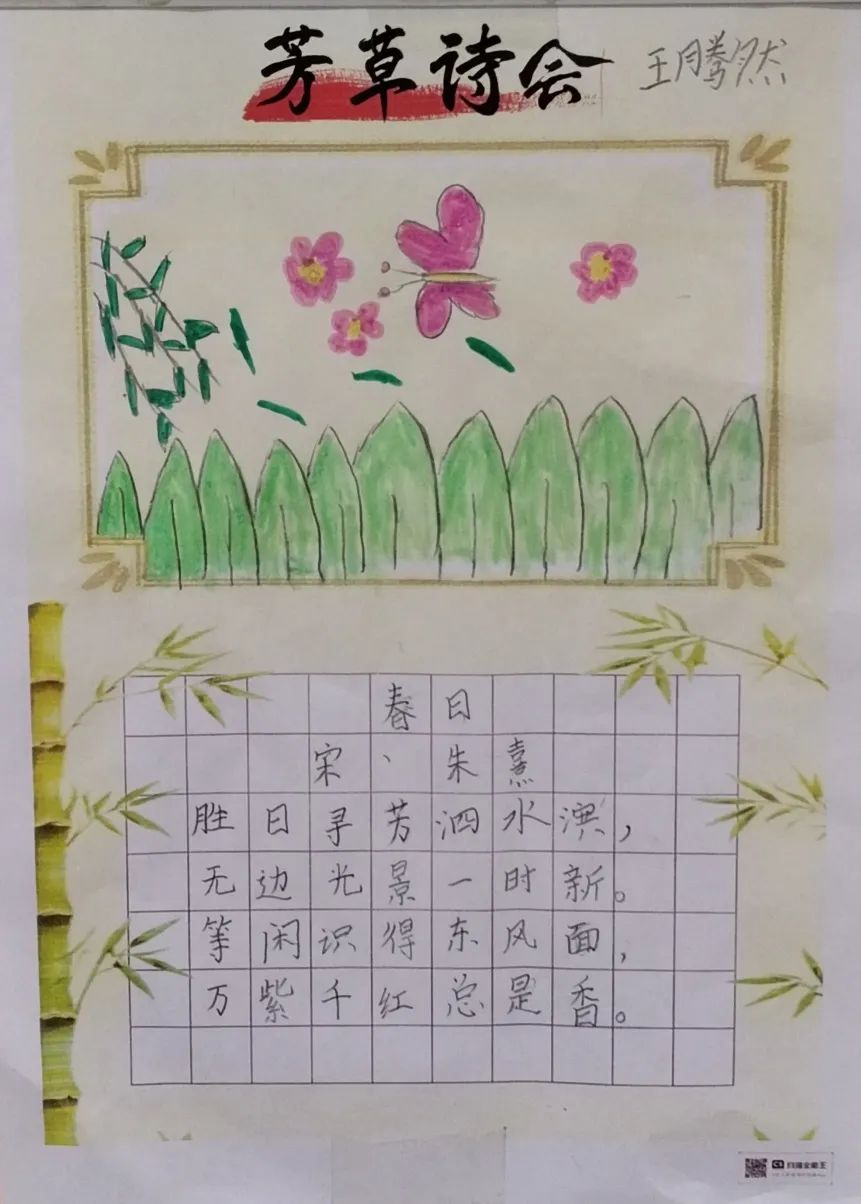 芳草诗会 王腾然
春日
宋、朱熹
胜日寻芳泗水滨，
无边光景一时新。
等闲识得东风面，
万紫千红总是香。
扫描全能王